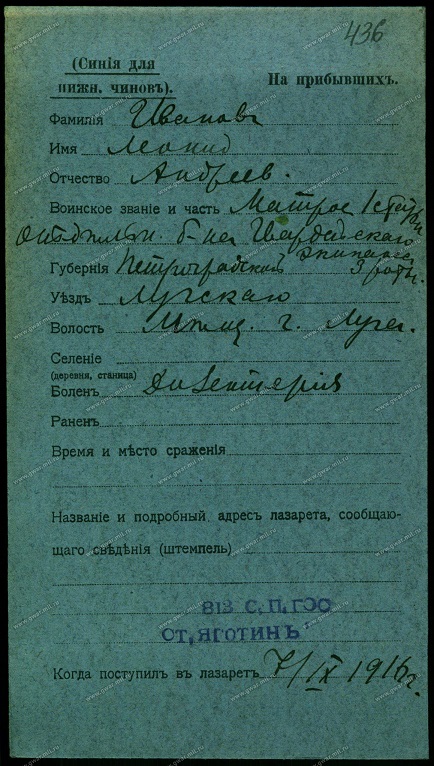 436
(Синія для
нижн. чиновъ).
На прибывшихъ.
Фамилія Ивановъ
Имя Леонид
Отчество Андреев.
Воинское званіе и часть Матрос 1 статьи
б-на Гвардейскаго
Экипажа
Губернія Петроградской 3 роты.
Уѣздъ Лужскаго
Волость Мѣщ. г. Луги.
Селеніе
(деревня, станица)
Боленъ Дизентерія
Раненъ
Время и мѣсто сраженія
Названіе и подробный адресъ лазарета, сообщаю-
щаго свѣдѣнія (штемпель)
813 С. П. ГОС
СТ, ЯГОТИНЪ
Когда поступилъ въ лазаретъ 7/IX 1916 г.
www.gwar.mil.ru